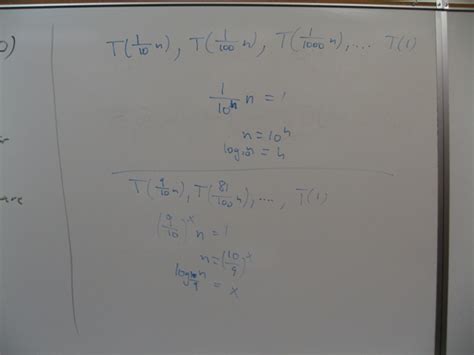 T(1/10 n), T(1/100 n), T(1/1000 n), .... T(1)
1/10^h n = 1
n = 10^h
log₁₀n = h
T(9/10 n), T(81/100 n), ...., T(1)
(9/10)^x n = 1
n = (10/9)^x
log 10/9 n = x